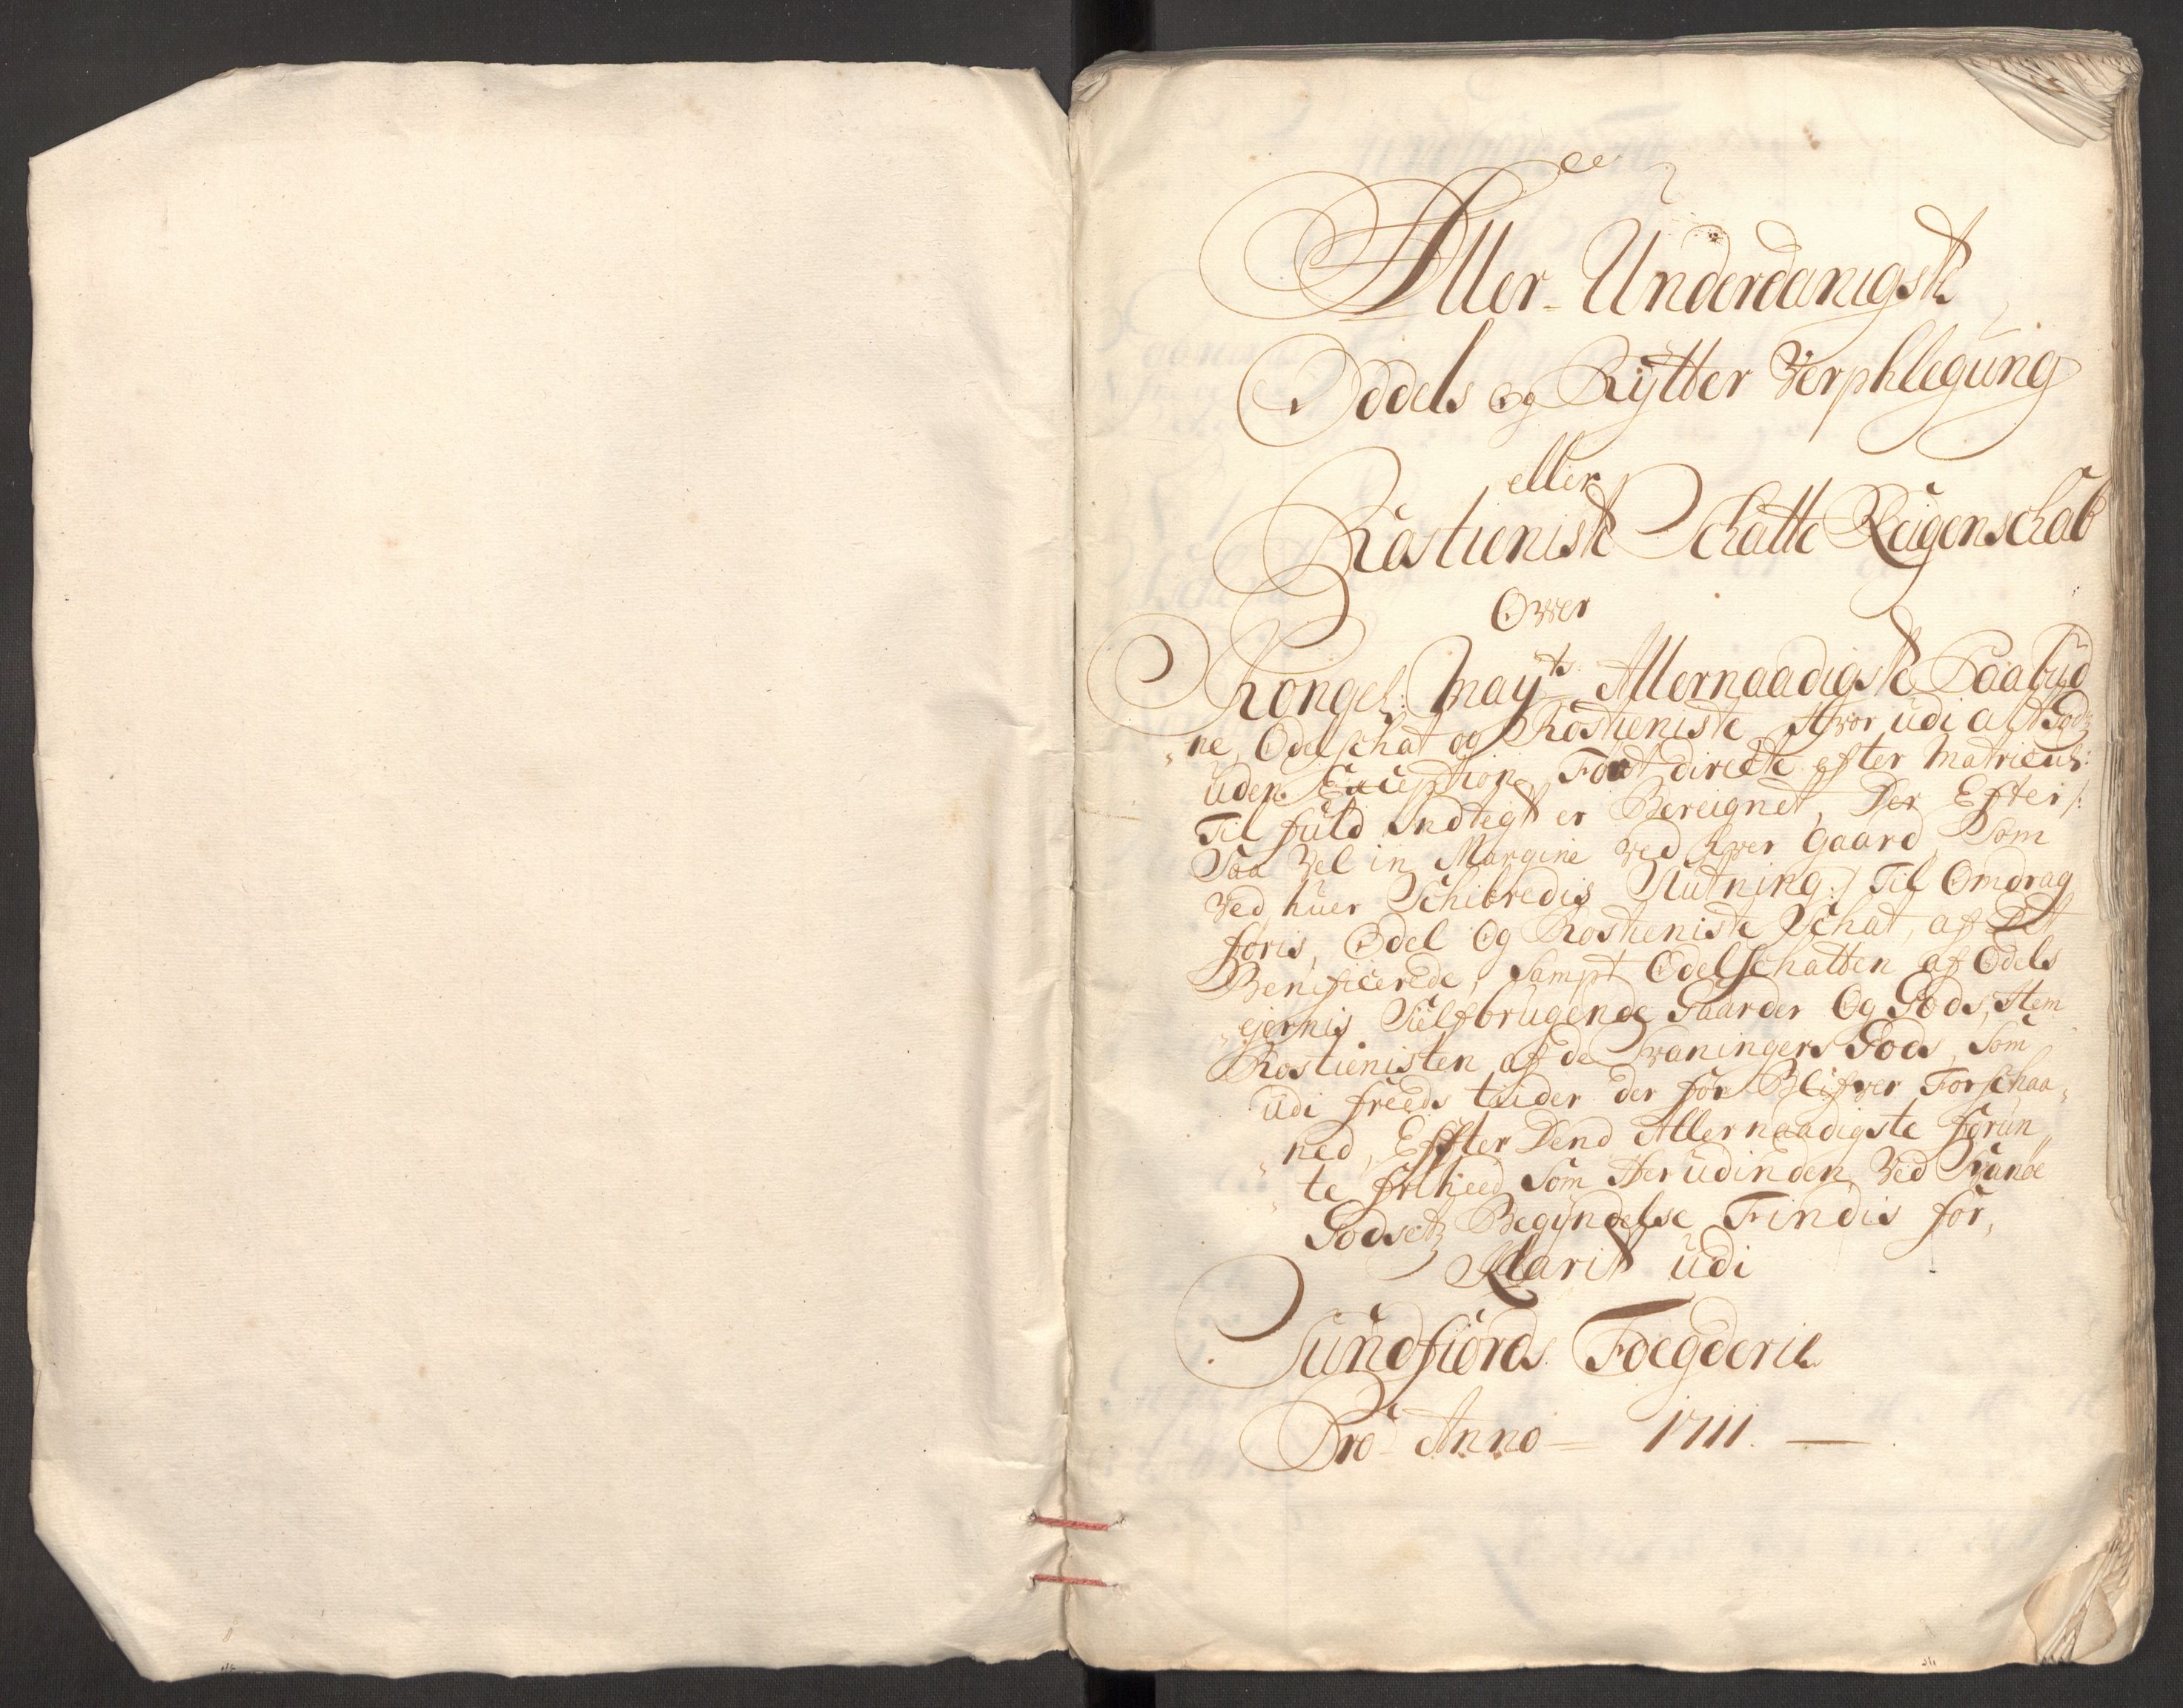 Aller-Underdanigst
Oddels og Rÿtter Verphlegung
eller
Rostienist Schatte Reigenschab
Ower
Kongel: Mayts Allernaadigste Paabud
ne Odelschat og Rostieniste Hvor udi alt Godz
uden Exception Fort directe efter Matricul:
Til fuld Indtegt er Bereignet, Der Efter /:
Saa Vel in Margine ved hver Gaard, Som
Ved huer Schibredis Slutning :/ Til Omdrag
føris, Odel Og Rostieniste Schat, af Det
Benificerede, Sampt Odelschatten af Odels
ejernis Sielfbrugende Gaarder Og Gods, Item
Rostienisten af de Svaningers Gods, Som
udi freeds tiider der for Blifver Forschaa
ned, Effter Dend Allernaadigste forun
te friheed Som Herudinden, Ved Svanøe
Godsetz Begÿndelse Findis for
Klarit udi
Sundfiords Foegderie
Pro Anno 1711.